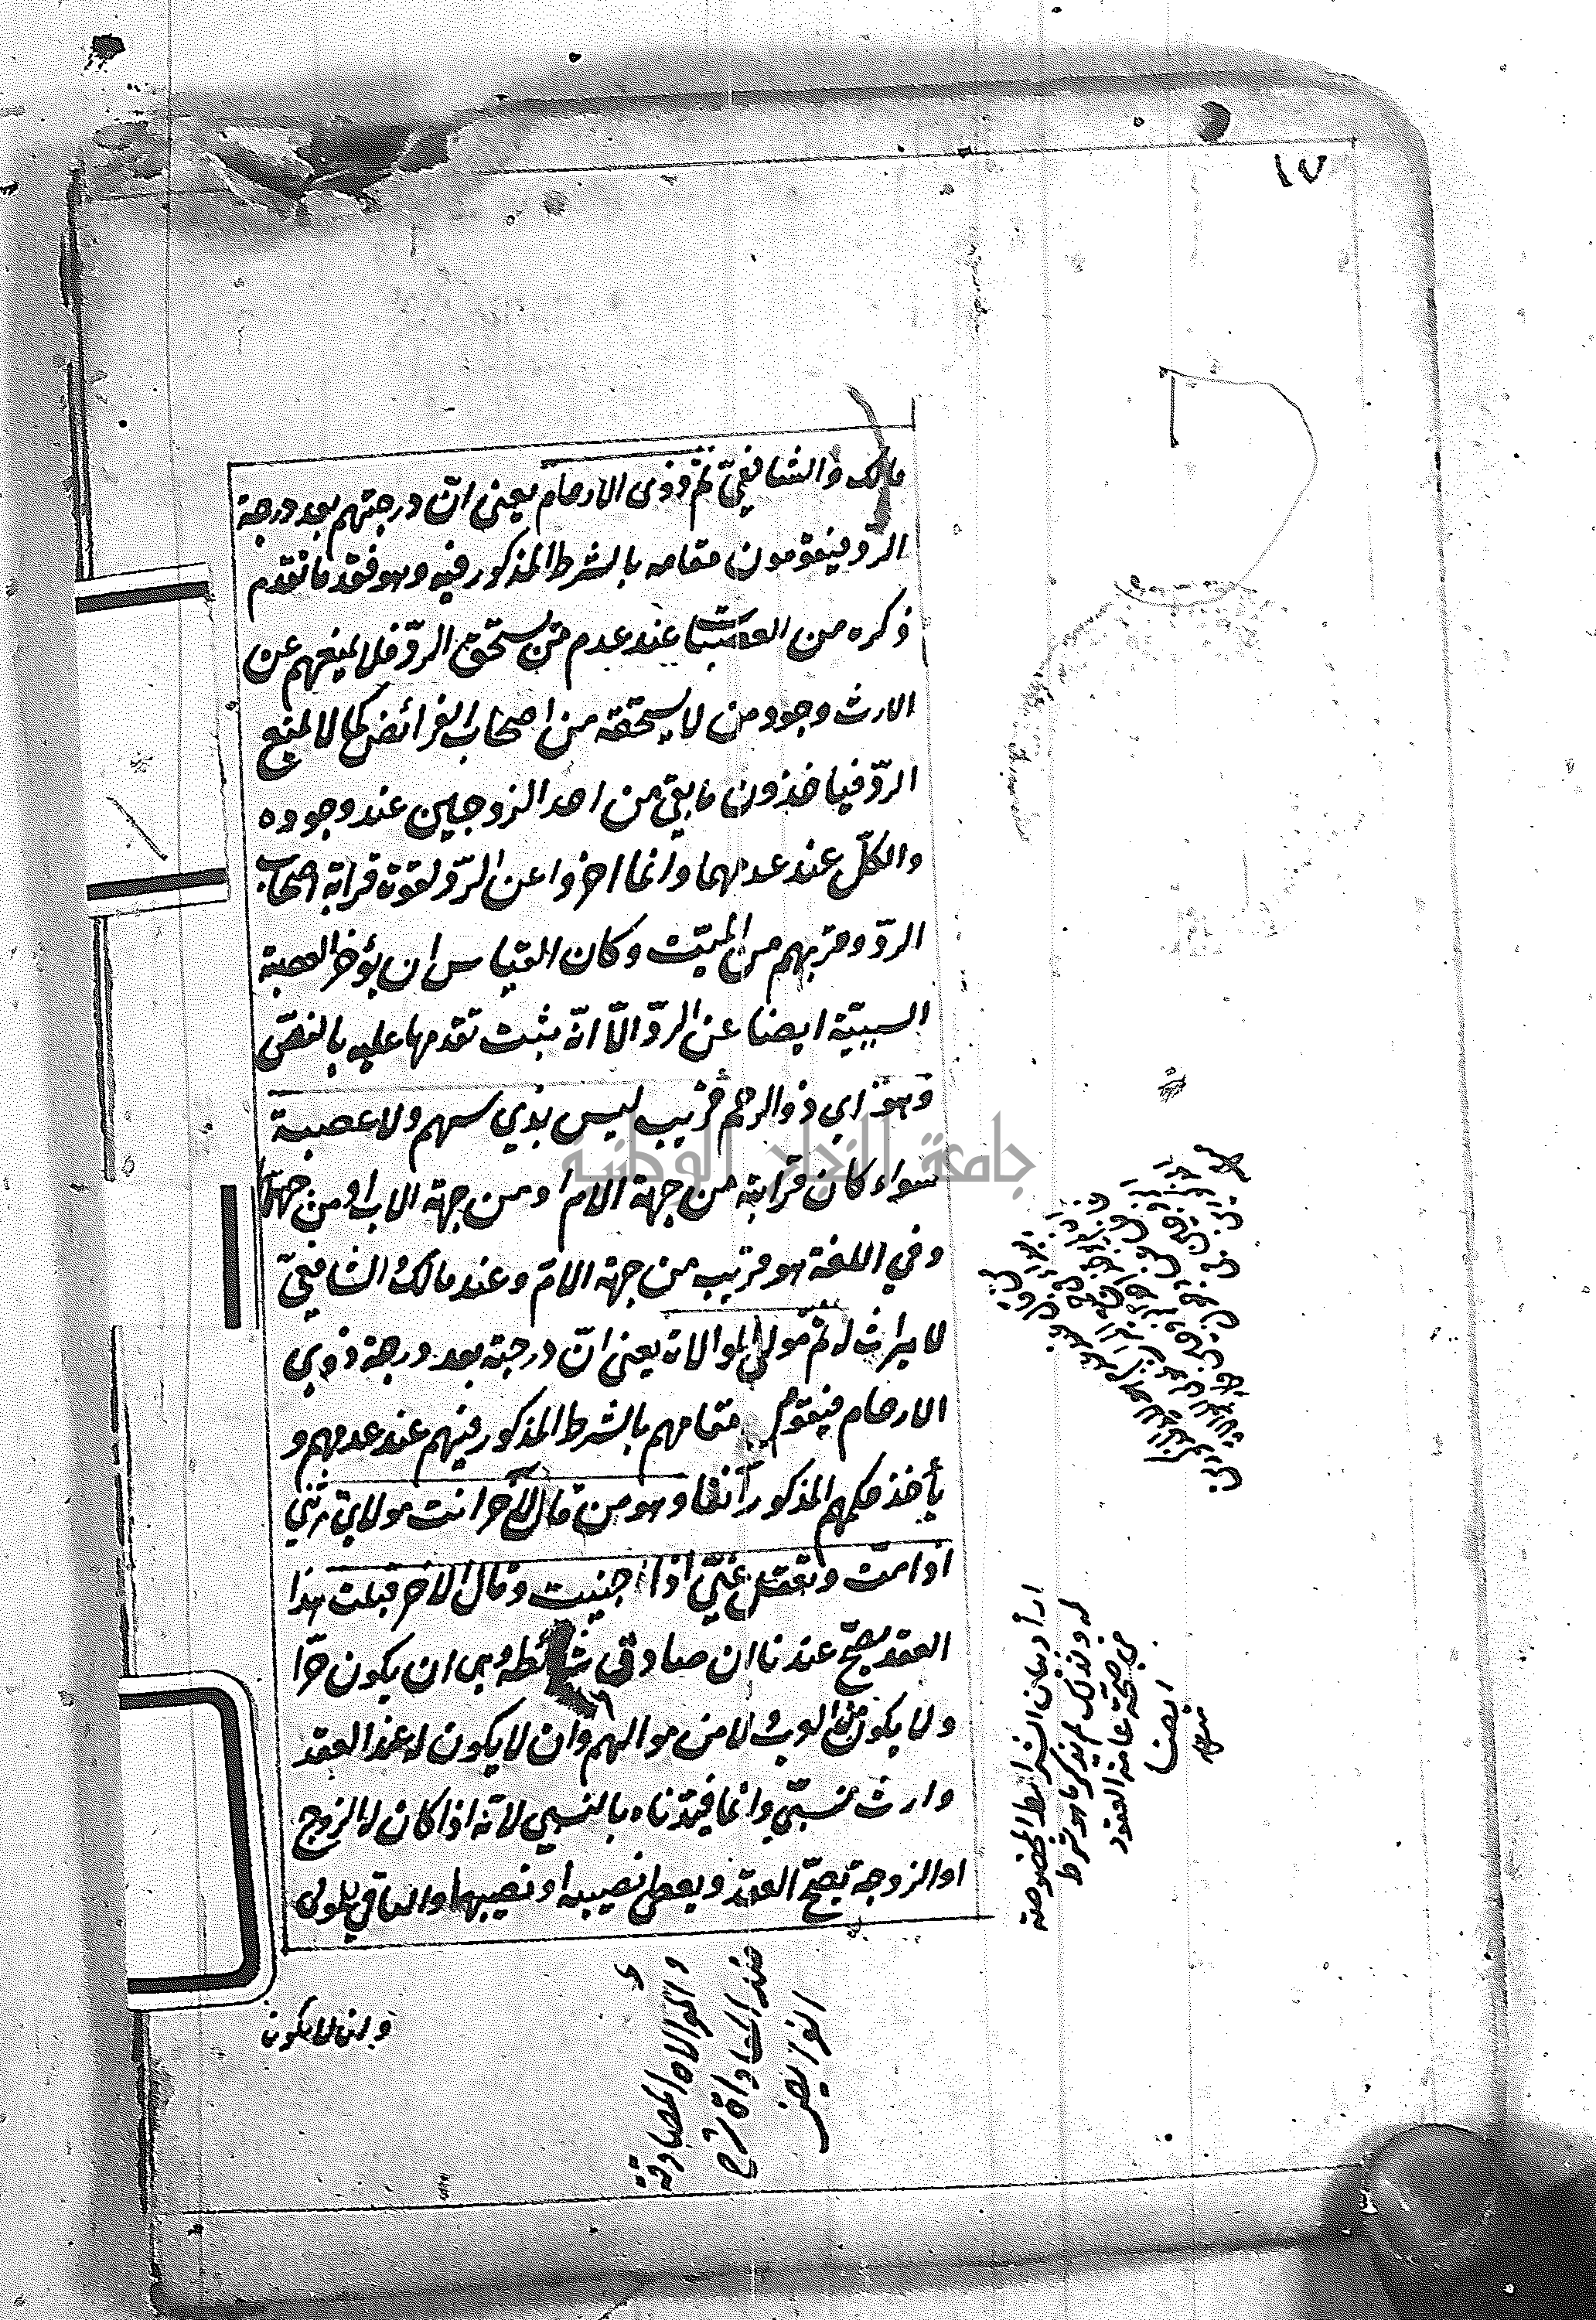 ١٧
مالك والشافعيّ ثمّ ذوى الارحام يعنى انّ درجتهم بعد درجة
الردّ فيقومون مقامه بالشرط المذكور فيه وهو فقد ما تقدم
ذكره من العصبات عند عدم من يستحق الردّ فلا يمنعهم عن
الارث وجود من لا يستحقه من اصحاب الفرائض كما لا يمنع
الردّ فياخذون ما بقي من احد الزوجين عند وجوده
والكلّ عند عدمهما وانما اخروا عن الردّ لقوة قرابة اصحاب
الردّ وقربهم من الميّت وكان القياس ان يؤخر العصبة
السببيّة ايضا عن الردّ الّا انّه يثبت تقدمها عليه بالنصّ
وهو اى ذو الرحم قريب ليس بذي سهم ولا عصبة
سواء كان قرابة من جهة الام او من جهة الاب او من جهتهما
وفي اللغة هو قريب من جهة الامّ وعند مالك والشافعيّ
لا ميراث له ثمّ مولى الموالاة يعنى انّ درجته بعد درجة ذوي
الارحام فيقوم مقامهم بالشرط المذكور فيهم عند عدمهم و
يأخذ حكمهم المذكور آنفا وهو من قال لآخر انت مولاي ترثني
اذا متّ وتعقل عنّي اذا جنيت وقال الآخر قبلت هذا
العقد يصحّ عندنا ان صادق شرائطه وهى ان يكون حرّا
ولا يكون من العرب ولا من مواليهم وان لا يكون له عند العقد
وارث نسبّي وانما قيّدناه بالنسبي لانّه اذا كان له الزوج
او الزوجة يصحّ العقد ويعطى نصيبه او نصيبها والباقي للمولى
وان لا يكون
اراد بيان الشرائط المخصوصة
له ولذلك لم يذكر ما هو شرط
في صحّة عامة العقود
ايضا
منه
والموالاة المصادقة
ضد المعاداة شرح
الفرايض
جامعة النجاح الوطنية